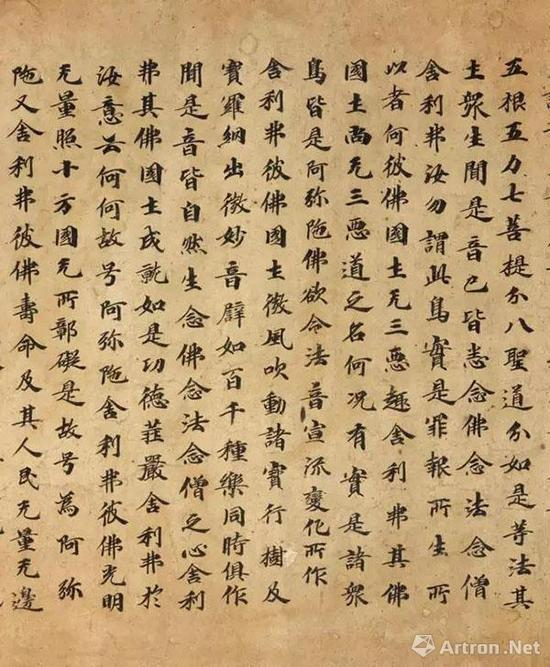 五根五力七菩提分八聖道分如是等法其
土眾生聞是音已皆悉念佛念法念僧
舍利弗汝勿謂此鳥實是罪報所生所
以者何彼佛國土无三惡趣舍利弗其佛
國土尚无三惡道之名何況有實是諸眾
鳥皆是阿弥陁佛欲令法音宣流變化所作
舍利弗彼佛國土微風吹動諸寶行樹及
寶羅網出微妙音譬如百千種樂同時俱作
聞是音皆自然生念佛念法念僧之心舍利
弗其佛國土成就如是功德莊嚴舍利弗於
汝意云何何故号阿弥陁舍利弗彼佛光明
无量照十方國无所鄣礙是故号為阿弥
陁又舍利弗彼佛壽命及其人民无量无邊
Artron.Net